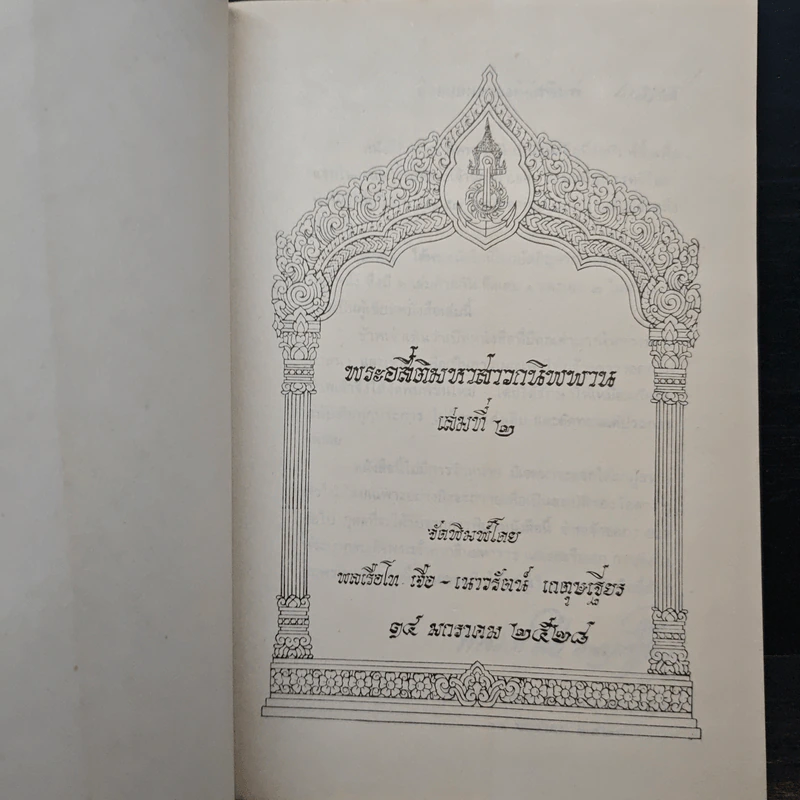 พระอสีติมหาสาวกนิพพาน
เล่มที่ ๒
จัดพิมพ์โดย
พลเรือโท เจือ - เนาวรัตน์ เกตุษเฐียร
๑๕ มกราคม ๒๕๒๘